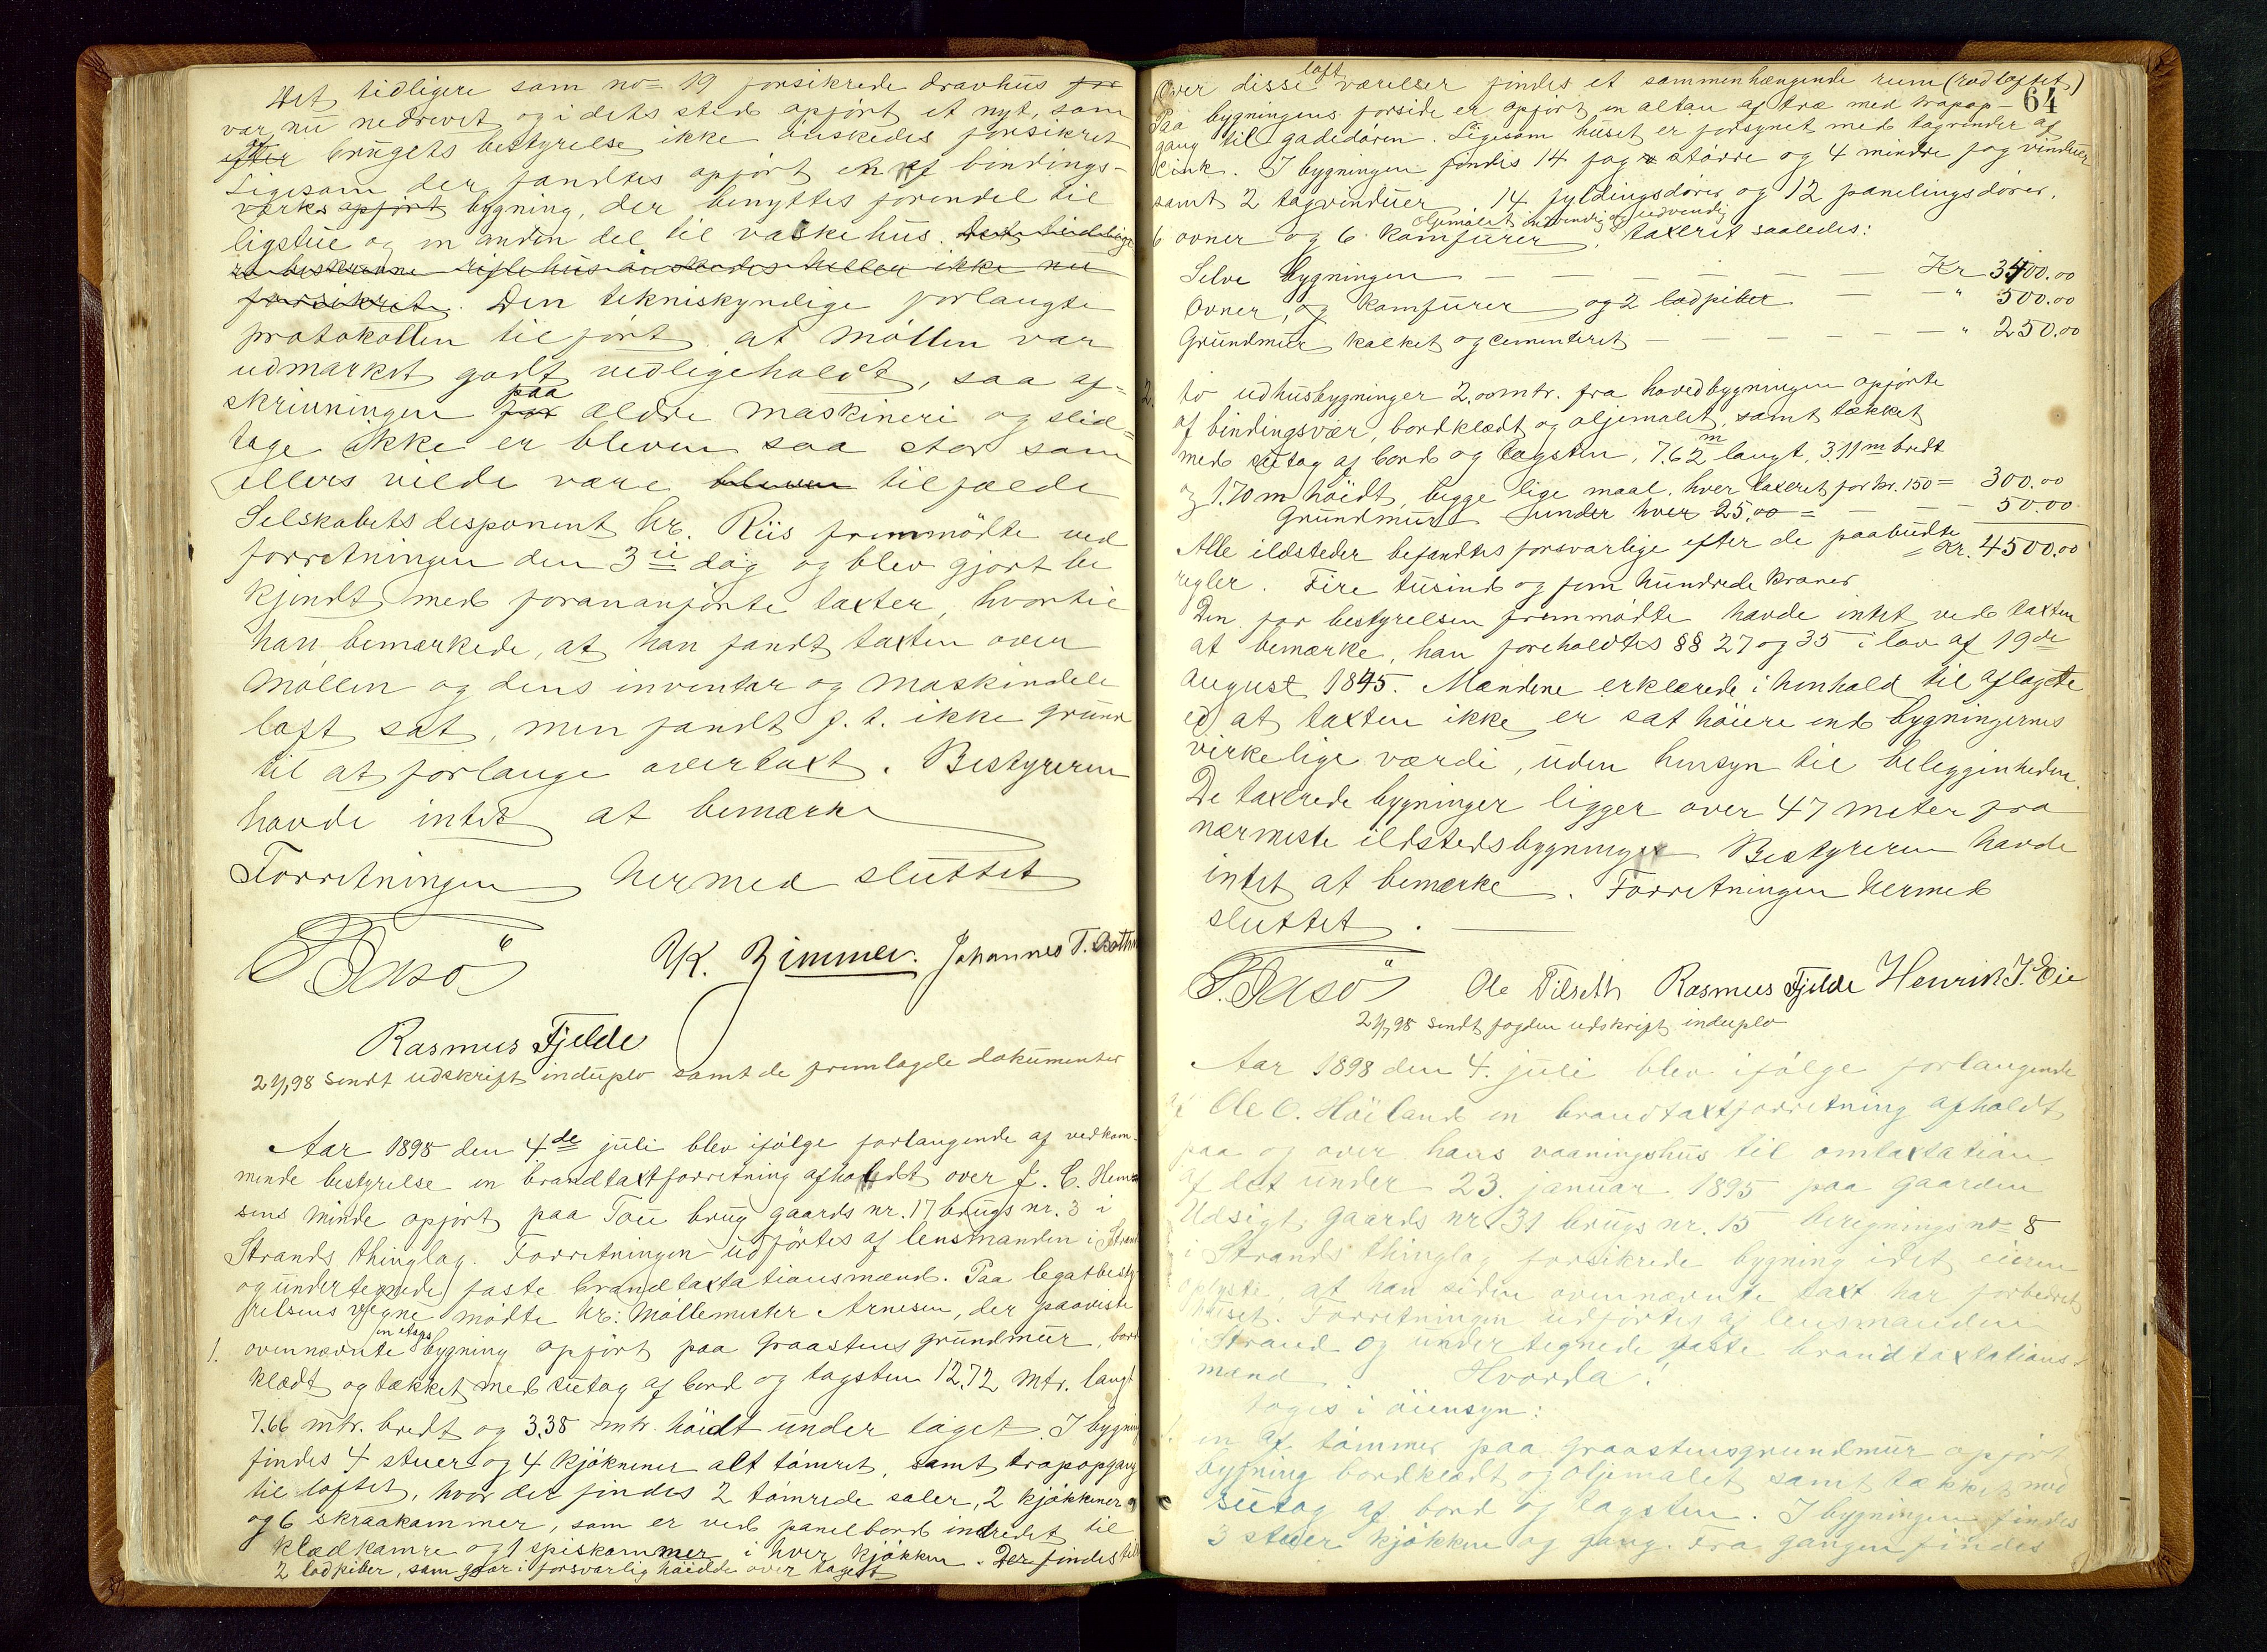 Det tidligere som no= 19 forsikrede dravhus for
var nu nedrevet og i dets sted opført et nyt, som
efter af brugets bestyrelse ikke ønskedes forsikret
Ligesom der fandtes opført en af bindings-
verks opført bygning, der benyttes forendel til
ligstue og en anden del til vaskehus. Det tidlige
re beskrevne riflehus ønskedes heller ikke nu
forsikret. Den tekniskyndige forlangte
protokollen tilført at Møllen var
udmærket godt vedligeholdt, saa af-
skrivningen for paa ældre maskineri og slid=
tage ikke er bleven saa stor som
ellers vilde være bleven tilfælde
Selskabets desponent hr. Riis fremmødte ved
forretningen den 3ii dag og blev gjort be
kjendt med forananførte taxter, hvortil
han bemærkede, at han fandt taxten over
Møllen og dens inventar og Maskindele
laft sat, men fandt f. t. ikke grund
til at forlange overtaxt. Bestyreren
havde intet at bemærke
Forretningen hermed sluttet
K. Zimmer. Johannes T. Both
Rasmus Fjelde
2 1/7 98 sendt udskrift induplo samt de fremlagde dokumenter
Aar 1898 den 4de juli blev ifølge forlangende af vedkom-
mende bestyrelse en brandtaxtforretning afholdt over J. C. Hem
sens Minde opført paa Tou brug gaards nr. 17 brugs nr. 3 i
Strands thinglag. Forretningen udførtes af lensmanden i Stran
og undertegnede faste brandtaxtationsmænd. Paa legatbesty
relsens vegne mødte hr: Møllemester Arnesen, der paaviste
1. ovennævnte en etages bygning opført paa Graastens grundmur, bord
klædt og tækket med sutag af bord og tagsten 12,72 Mtr. langt
7.66 mtr. bredt og 3.38 mtr. høidt under taget. I bygning
findes 4 stuer og 4 kjøkener alt tømret, samt trapopgang
til loftet, hvor der findes 2 tømrede saler, 2 kjøkkener og
og 6 skraakammer, som er ved panelbord indredet til
klædkamre og 1 spiskammer i hver kjøkken. Der findes
2 lodpiber, som gaar i forsvarlig høide over taget
64
Over disse loft værelser findes et sammenhængende rum (rodloftet)
Paa bygningens forside er opført en altan af træ med trapop-
gang til gadedøren. Ligesom huset er forsynet med tagrender af
cink. I bygningen findes 14 fag større og 4 mindre fag vinduer
samt 2 tagvinduer, 14 fyldingsdører og 12 panelingsdører,
6 ovner og 6 Komfurer oljemalet indvendig og udvendig, taxeret saaledes:
Selve bygningen — — — — — Kr 3400.00
Ovner, og Komfurer og 2 lodpiber — — " 500.00
Grundmur kalket og cementeret — — — — — " 250.00
2. to udhusbygninger 2.00 mtr. fra hovedbygningen opførte
af bindingsvær, bordklædt og oljemalet, samt tækket
med sutag af bord og tagsten, 7.62 m langt, 3.11 m bredt
og 1.70 m høidt, begge lige maal, hver taxeret for kr. 150 = 300.00
Grundmur under hver 25.00 = — — — 50.00
Alle ildsteder befandtes forsvarlige efter de paabudte = Kr. 4500.00
regler. Fire tusind og fem hundrede kroner
Den for bestyrelsen fremmødte havde intet ved taxten
at bemærke, han foreholdtes §§ 27 og 35 i lov af 19de
August 1845. Mændene erklærede i henhold til aflagete
ed at taxten ikke er sat høiere end bygningernes
virkelige værdi, uden hensyn til beliggenheden.
De taxerede bygninger ligger over 47 meter fra
nærmeste ildstedsbygninger Bestyreren havde
intet at bemærke. Forretningen hermed
sluttet.
Ole Tilseth Rasmus Fjelde Henrik J. Eie
2 1/7 98 sendt fogden udskrift induplo
Aar 1898 den 4. juli blev ifølge forlangende
af Ole O. Høiland en brandtaxtforretning afholdt
paa og over hans vaaningshus til omtaxtation
af det under 23. januar 1895 paa gaarden
Udsigt gaards nr. 31 brugs nr. 15 beregnings no 8
i Strands thinglag forsikrede bygning idet eieren
oplyste, at han siden ovennævnte taxt har forbedret
huset. Forretningen udførtes af lensmanden
i Strand og undertegnede faste brandtaxtations-
mænd Hvorda!
toges i øiensyn:
1. en af tømmer paa graastensgrundmur opført
bygning bordklædt og oljemalet samt tækket med
sutag af bord og tagsten. I bygningen findes
3 stuer kjøkken og gang. Fra gangen findes